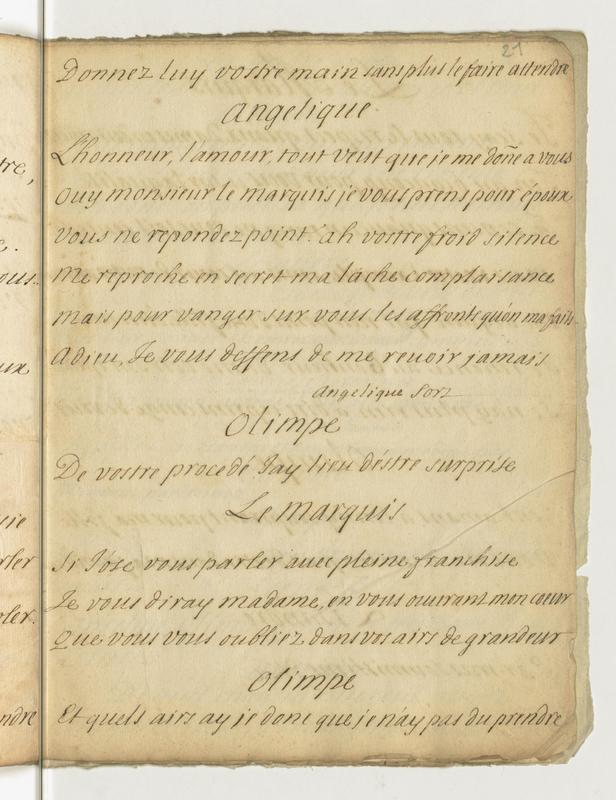 21
Donnez luy vostre main sans plus le faire attendre
Angelique
L'honneur, l'amour, tout veut que je me doñe a vous
Ouy monsieur le marquis je vous prens pour époux
Vous ne repondez point. ah vostre froid silence
Me reproche en secret ma lâche complaisance
Mais pour vanger sur vous les affronts qu'on ma faits.
Adieu, Je vous deffens de me revoir jamais
Angelique sort
Olimpe
De vostre procedé J'ay lieu d'éstre surprise
Le Marquis
Si J'ose vous parler avec pleine franchise
Je vous diray madame, en vous ouvrant mon coeur
Que vous vous oubliez dans vos airs de grandeur
Olimpe
Et quels airs ay je donc que je n'ay pas du prendre
tre,
e.
ous.
ux
rler
rler.
ndre